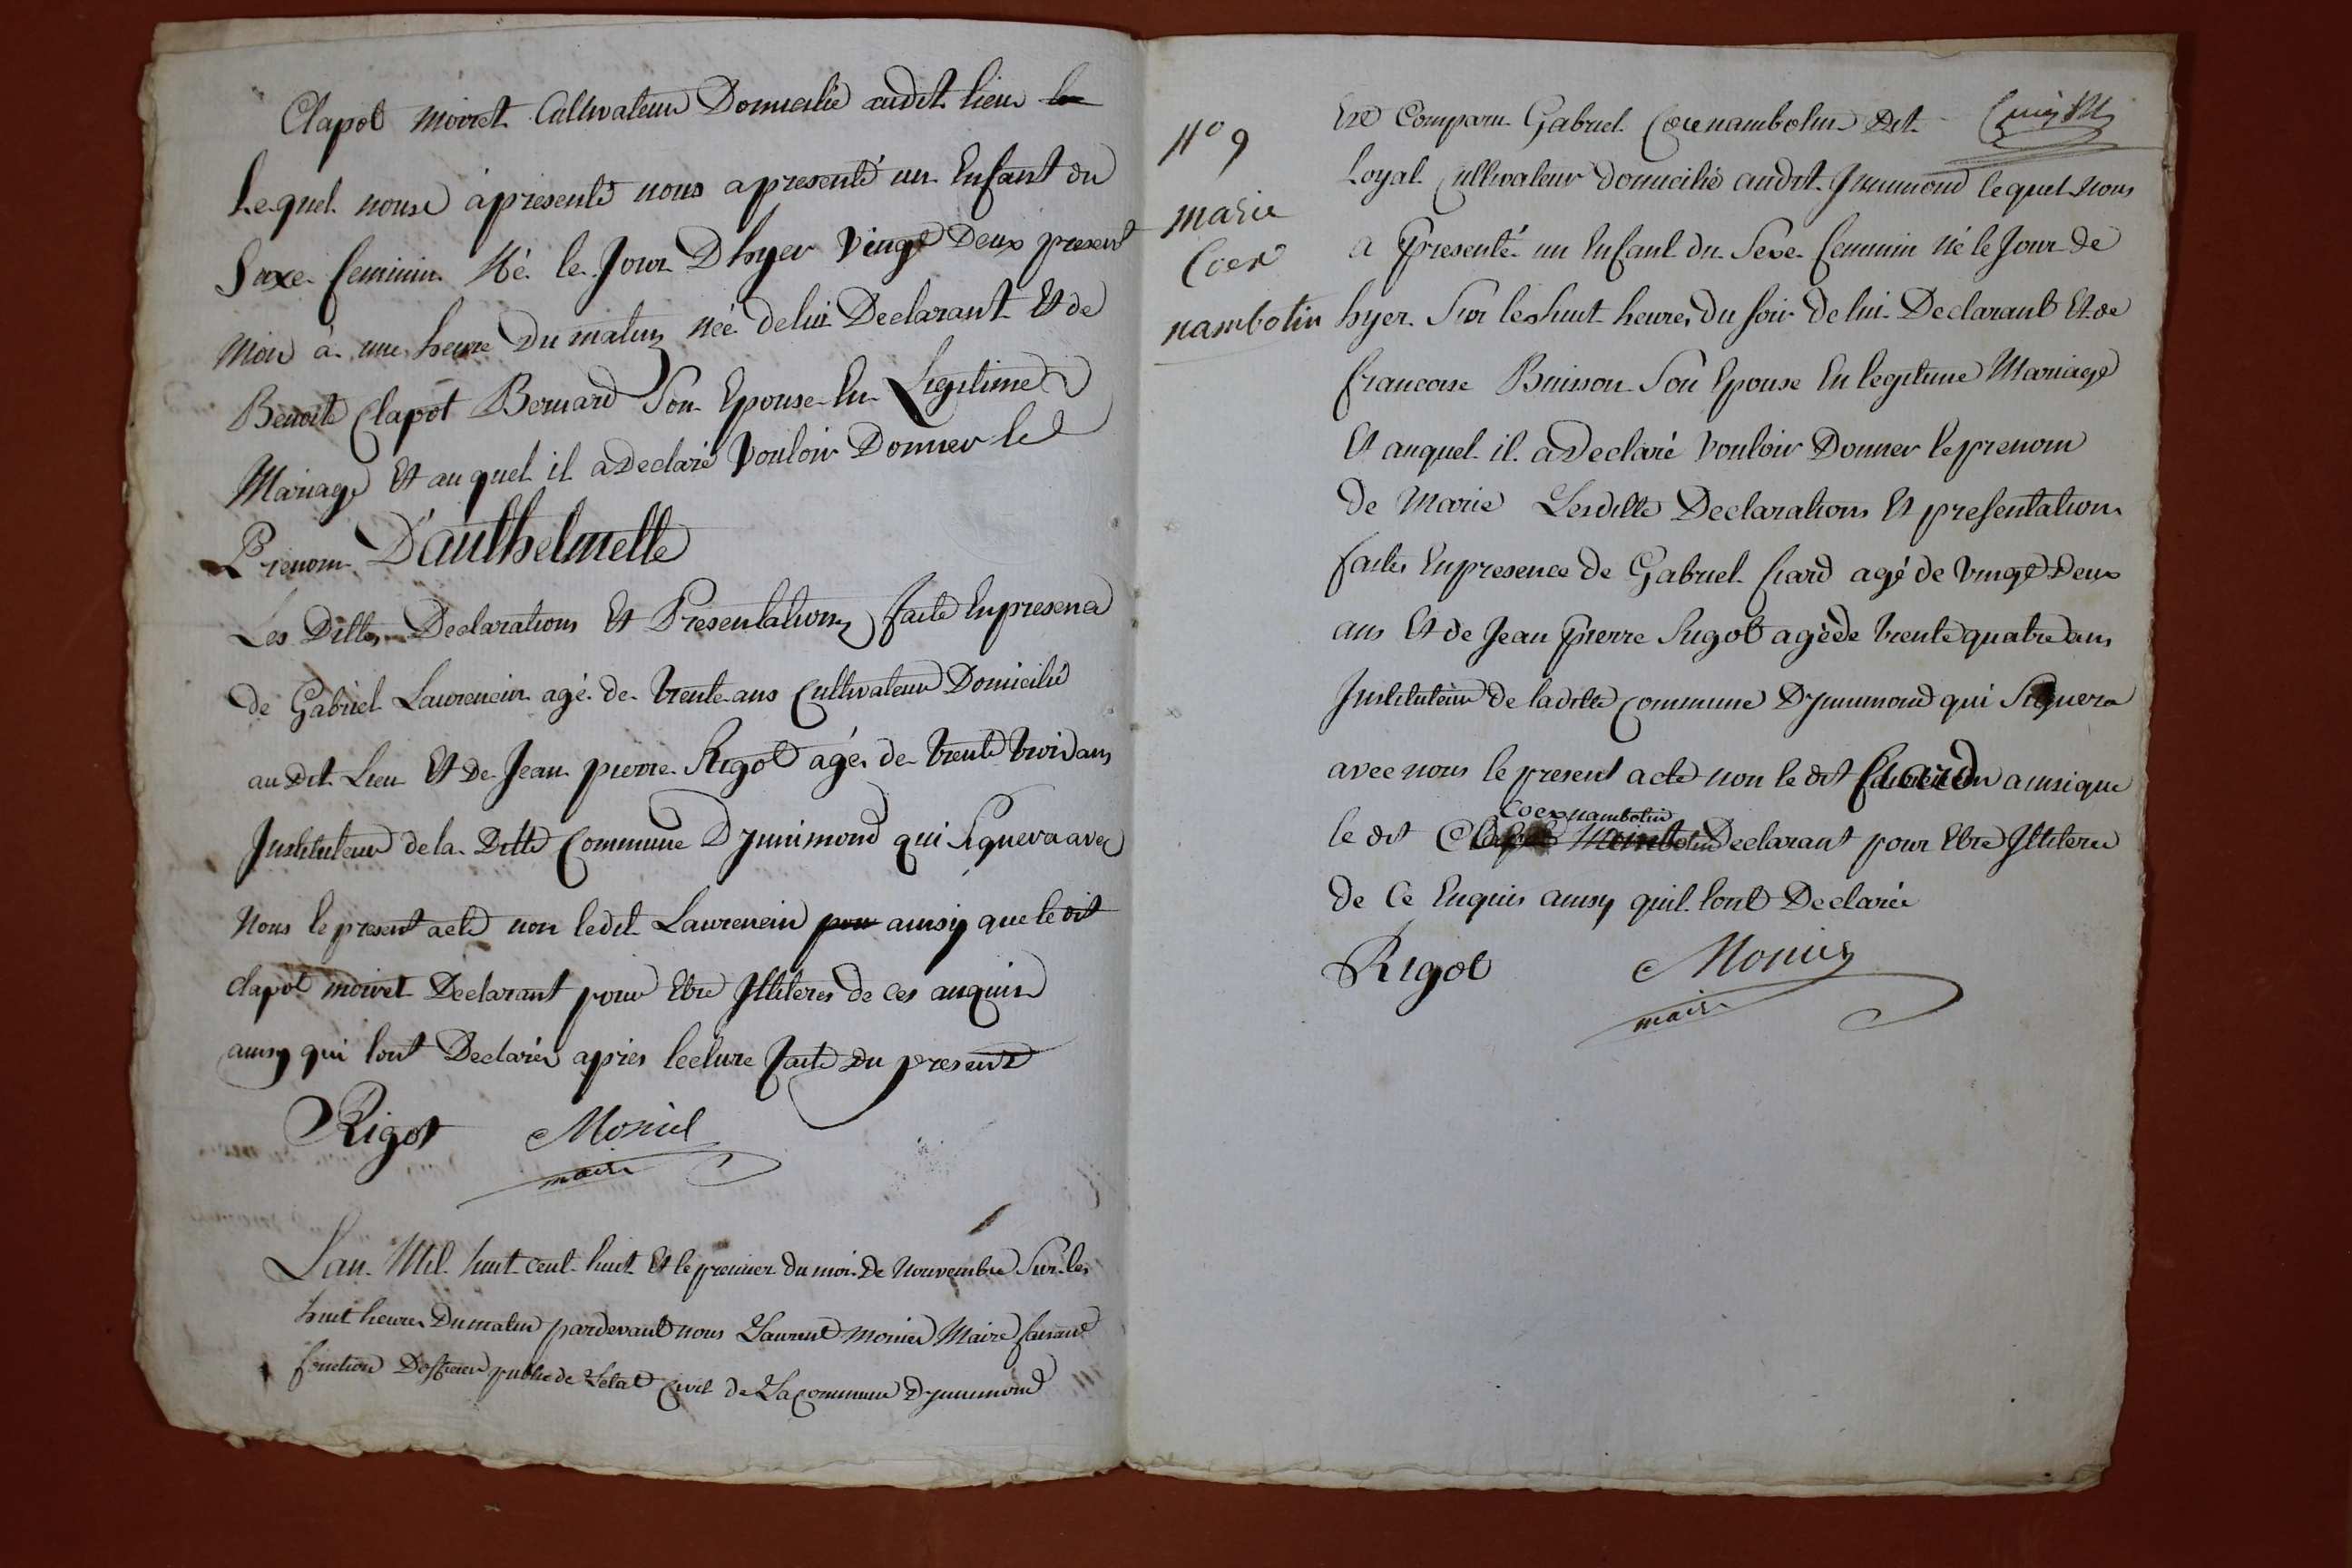 Clapot moiret Cultivateur Domicilié audit lieu le
Lequel nouse àpresenté nous apresenté un Enfant du
Saxe feminin Né le Jour D hyer Vingt Deux present
moi à une heure Du matin née de lui Declarant Et de
Benoite Clapot Bernard Son Epouse En Legitime
Mariage Et au quel il a Declaré Vouloir Donner le
Prenom D'authelmette
Les Dittes Declarations Et Présentations faite En presence
de Gabriel Laurencin agé de trente ans Cultivateur Domicilié
au Dit Lieu Et De Jean pierre Rigot agé de trente trois ans
Instituteur de la Ditte Commune D Innimond qui Signera avec
Nous le present acte non ledit Laurencin pou ainsy que le dit
clapot moiret Declarant pour Etre Illiteres de ces anquis
ainsy qui lont Declarés après lecture faite du present
Rigot Monier
maire
Lan Mil huit cent huit Et le premier du moi de Nouvembre Sur les
huit heures Du matin pardevant nous Laurent monier Maire faisant
fonction Dofficier public de Letat Civil de La Commune D'Innimond
N° 9
marie
Coex
nambotin
Est Comparu Gabriel Coexnambotin Dit
Loyal Cultivateur domicilié audit Innimond lequel Nous
a Presenté un Enfant du Sexe feminin né le Jour de
hyer Sur les huit heures du soir de lui Declarant Et de
francoise Buisson Son Epouse En legitime Mariage
Et auquel il a Declaré Vouloir Donner le prenom
de Marie Lesditte Declarations Et presentations
faites En presence de Gabriel Ciard agé de Vingt Deux
ans Et de Jean Pierre Rigot agé de trente quatre ans
Instituteur de la ditte Commune D'Innimond qui Signera
avec nous le present acte non le dit Ciard ainsi que
Coexnambotin
le dit Declarant pour Etre Illiteré
de Ce Enquis ainsy quil lont Declarés
Rigot Monier
maire